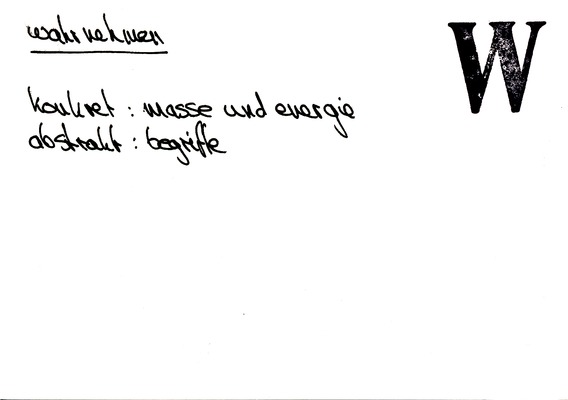 wahrnehmen
W
konkret : masse und energie
abstrakt : begriffe